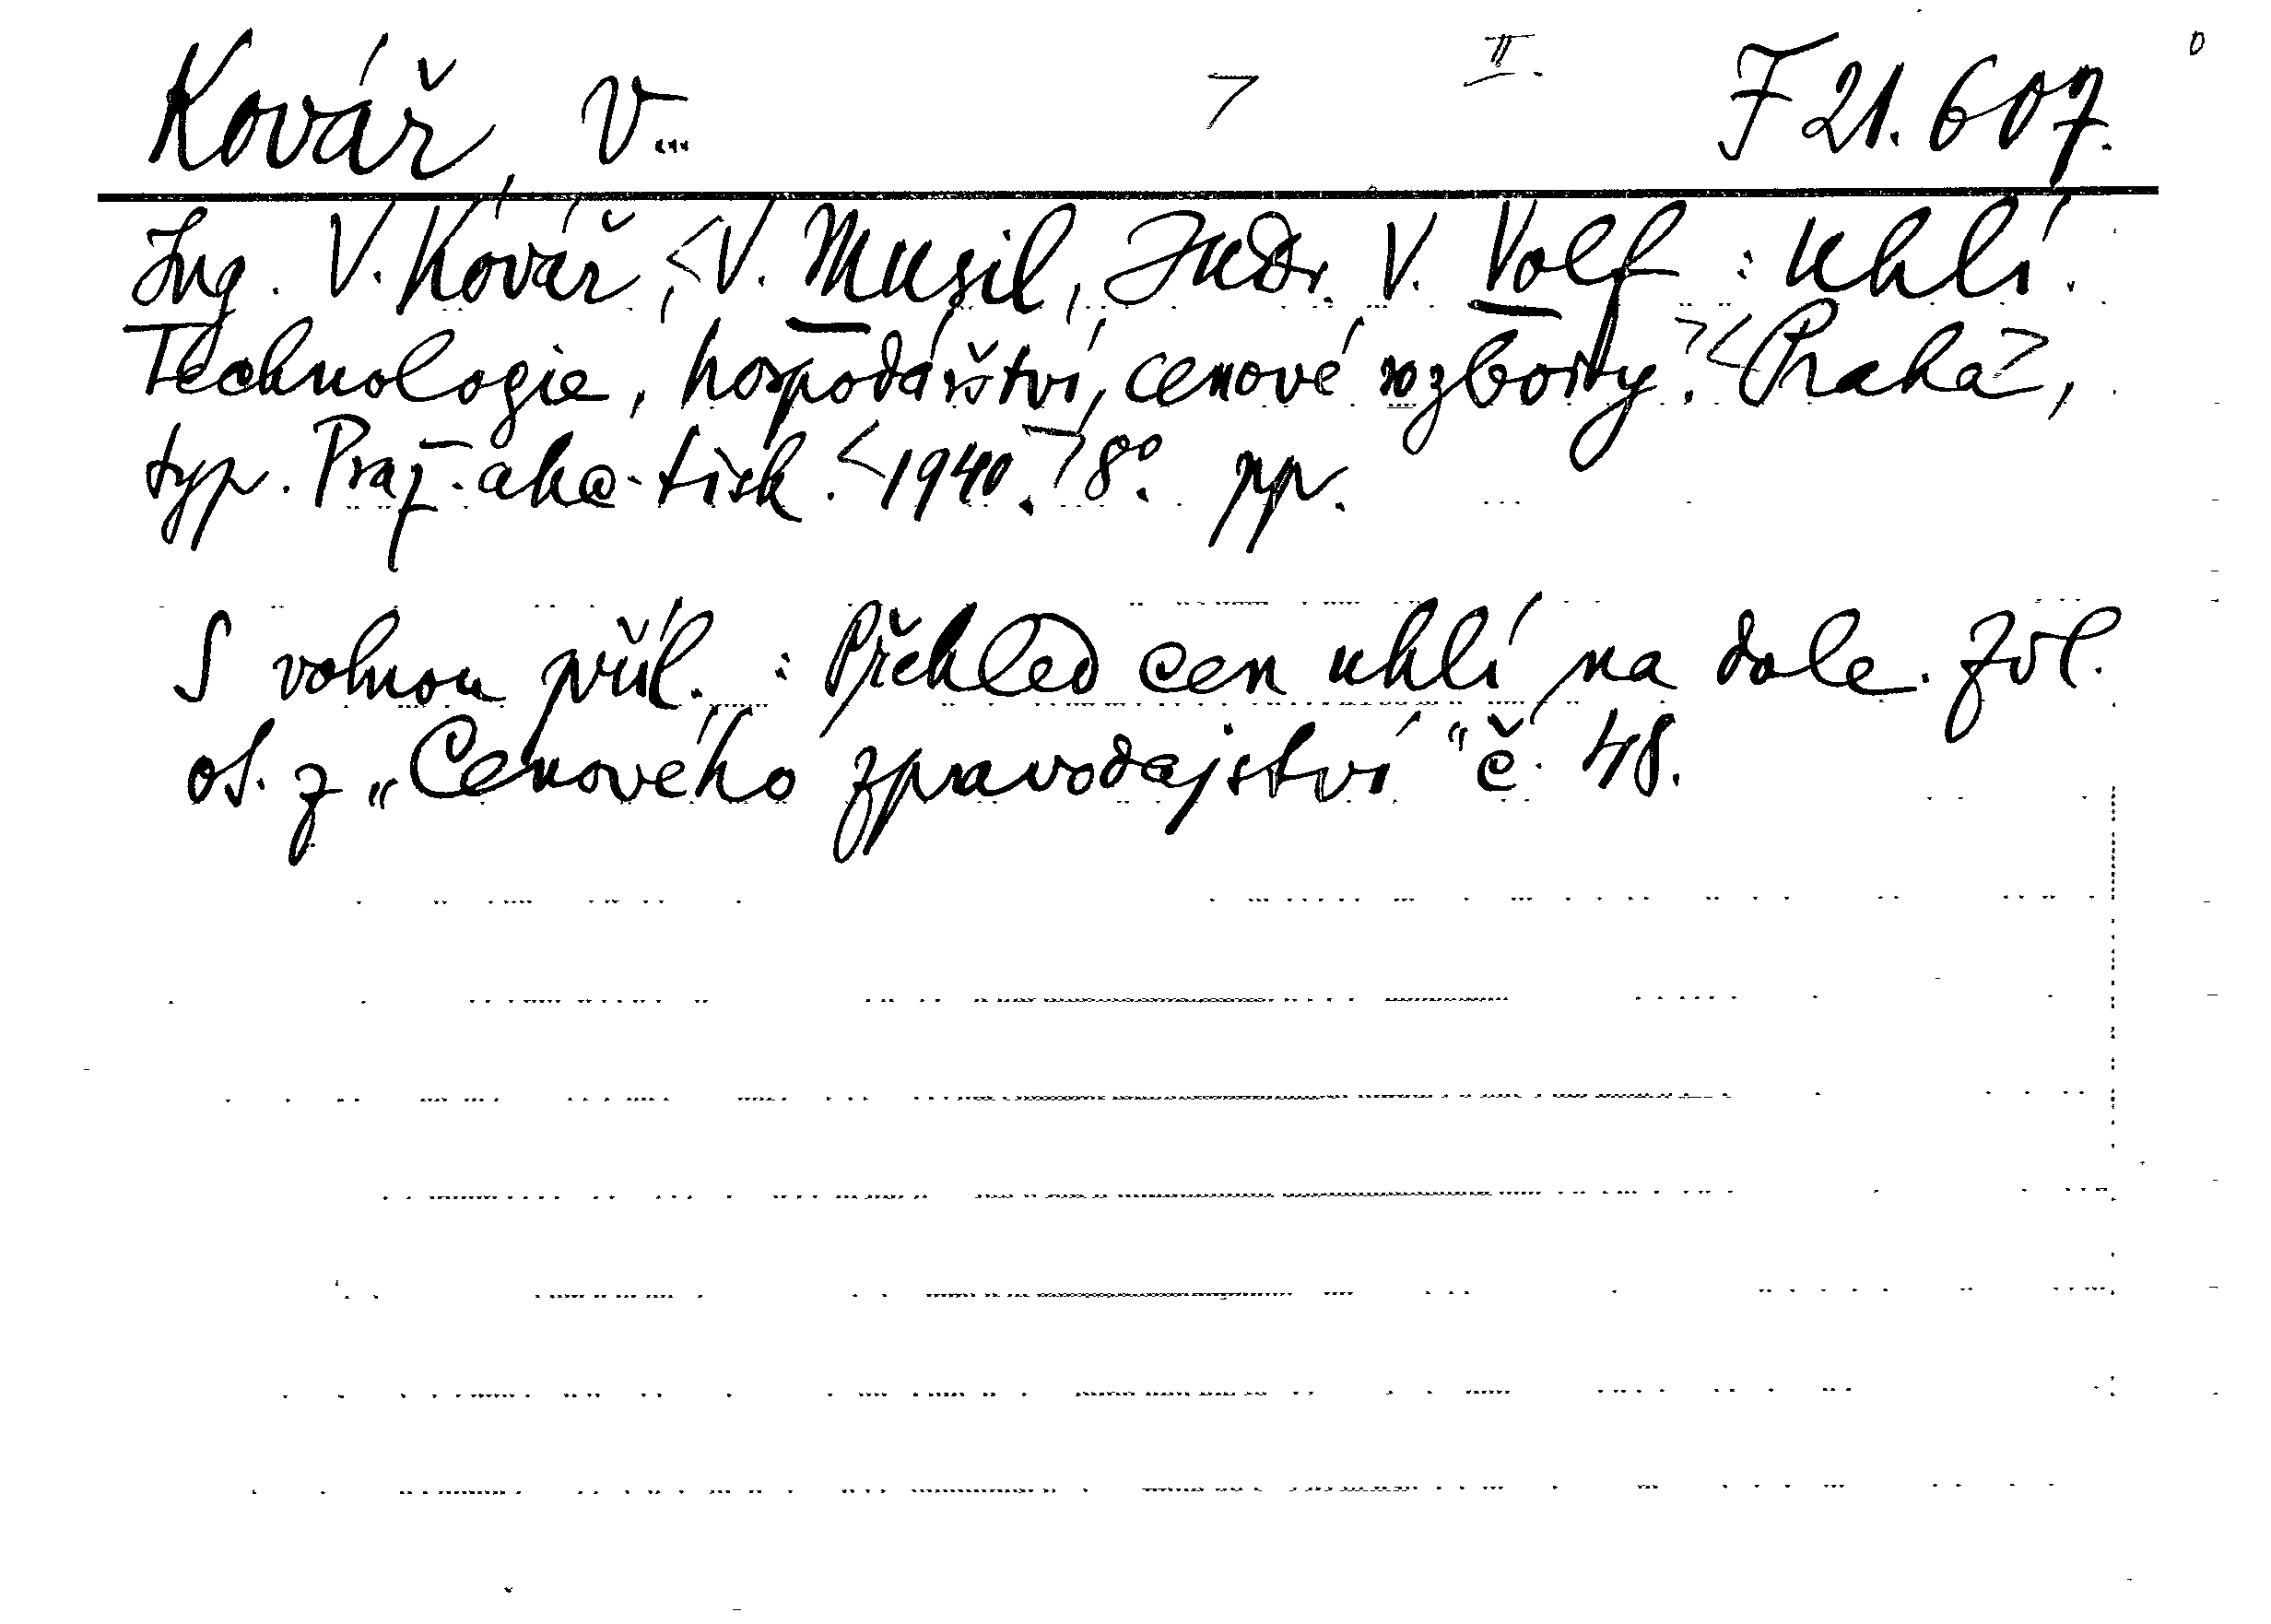 Kovář, V... > II. F 21.607.
Ing. V. Kovář, <V. Musil, JUDr. V. Volf: Uhlí.
Technologie, hospodářství, cenové rozbory.> <Praha>,
typ. Praž. aka. tisk. <1940.> 8°. pp.
S volnou příl.: Přehled cen uhlí na dole. Zvl.
ot. z „Cenového zpravodajství" č. 48.